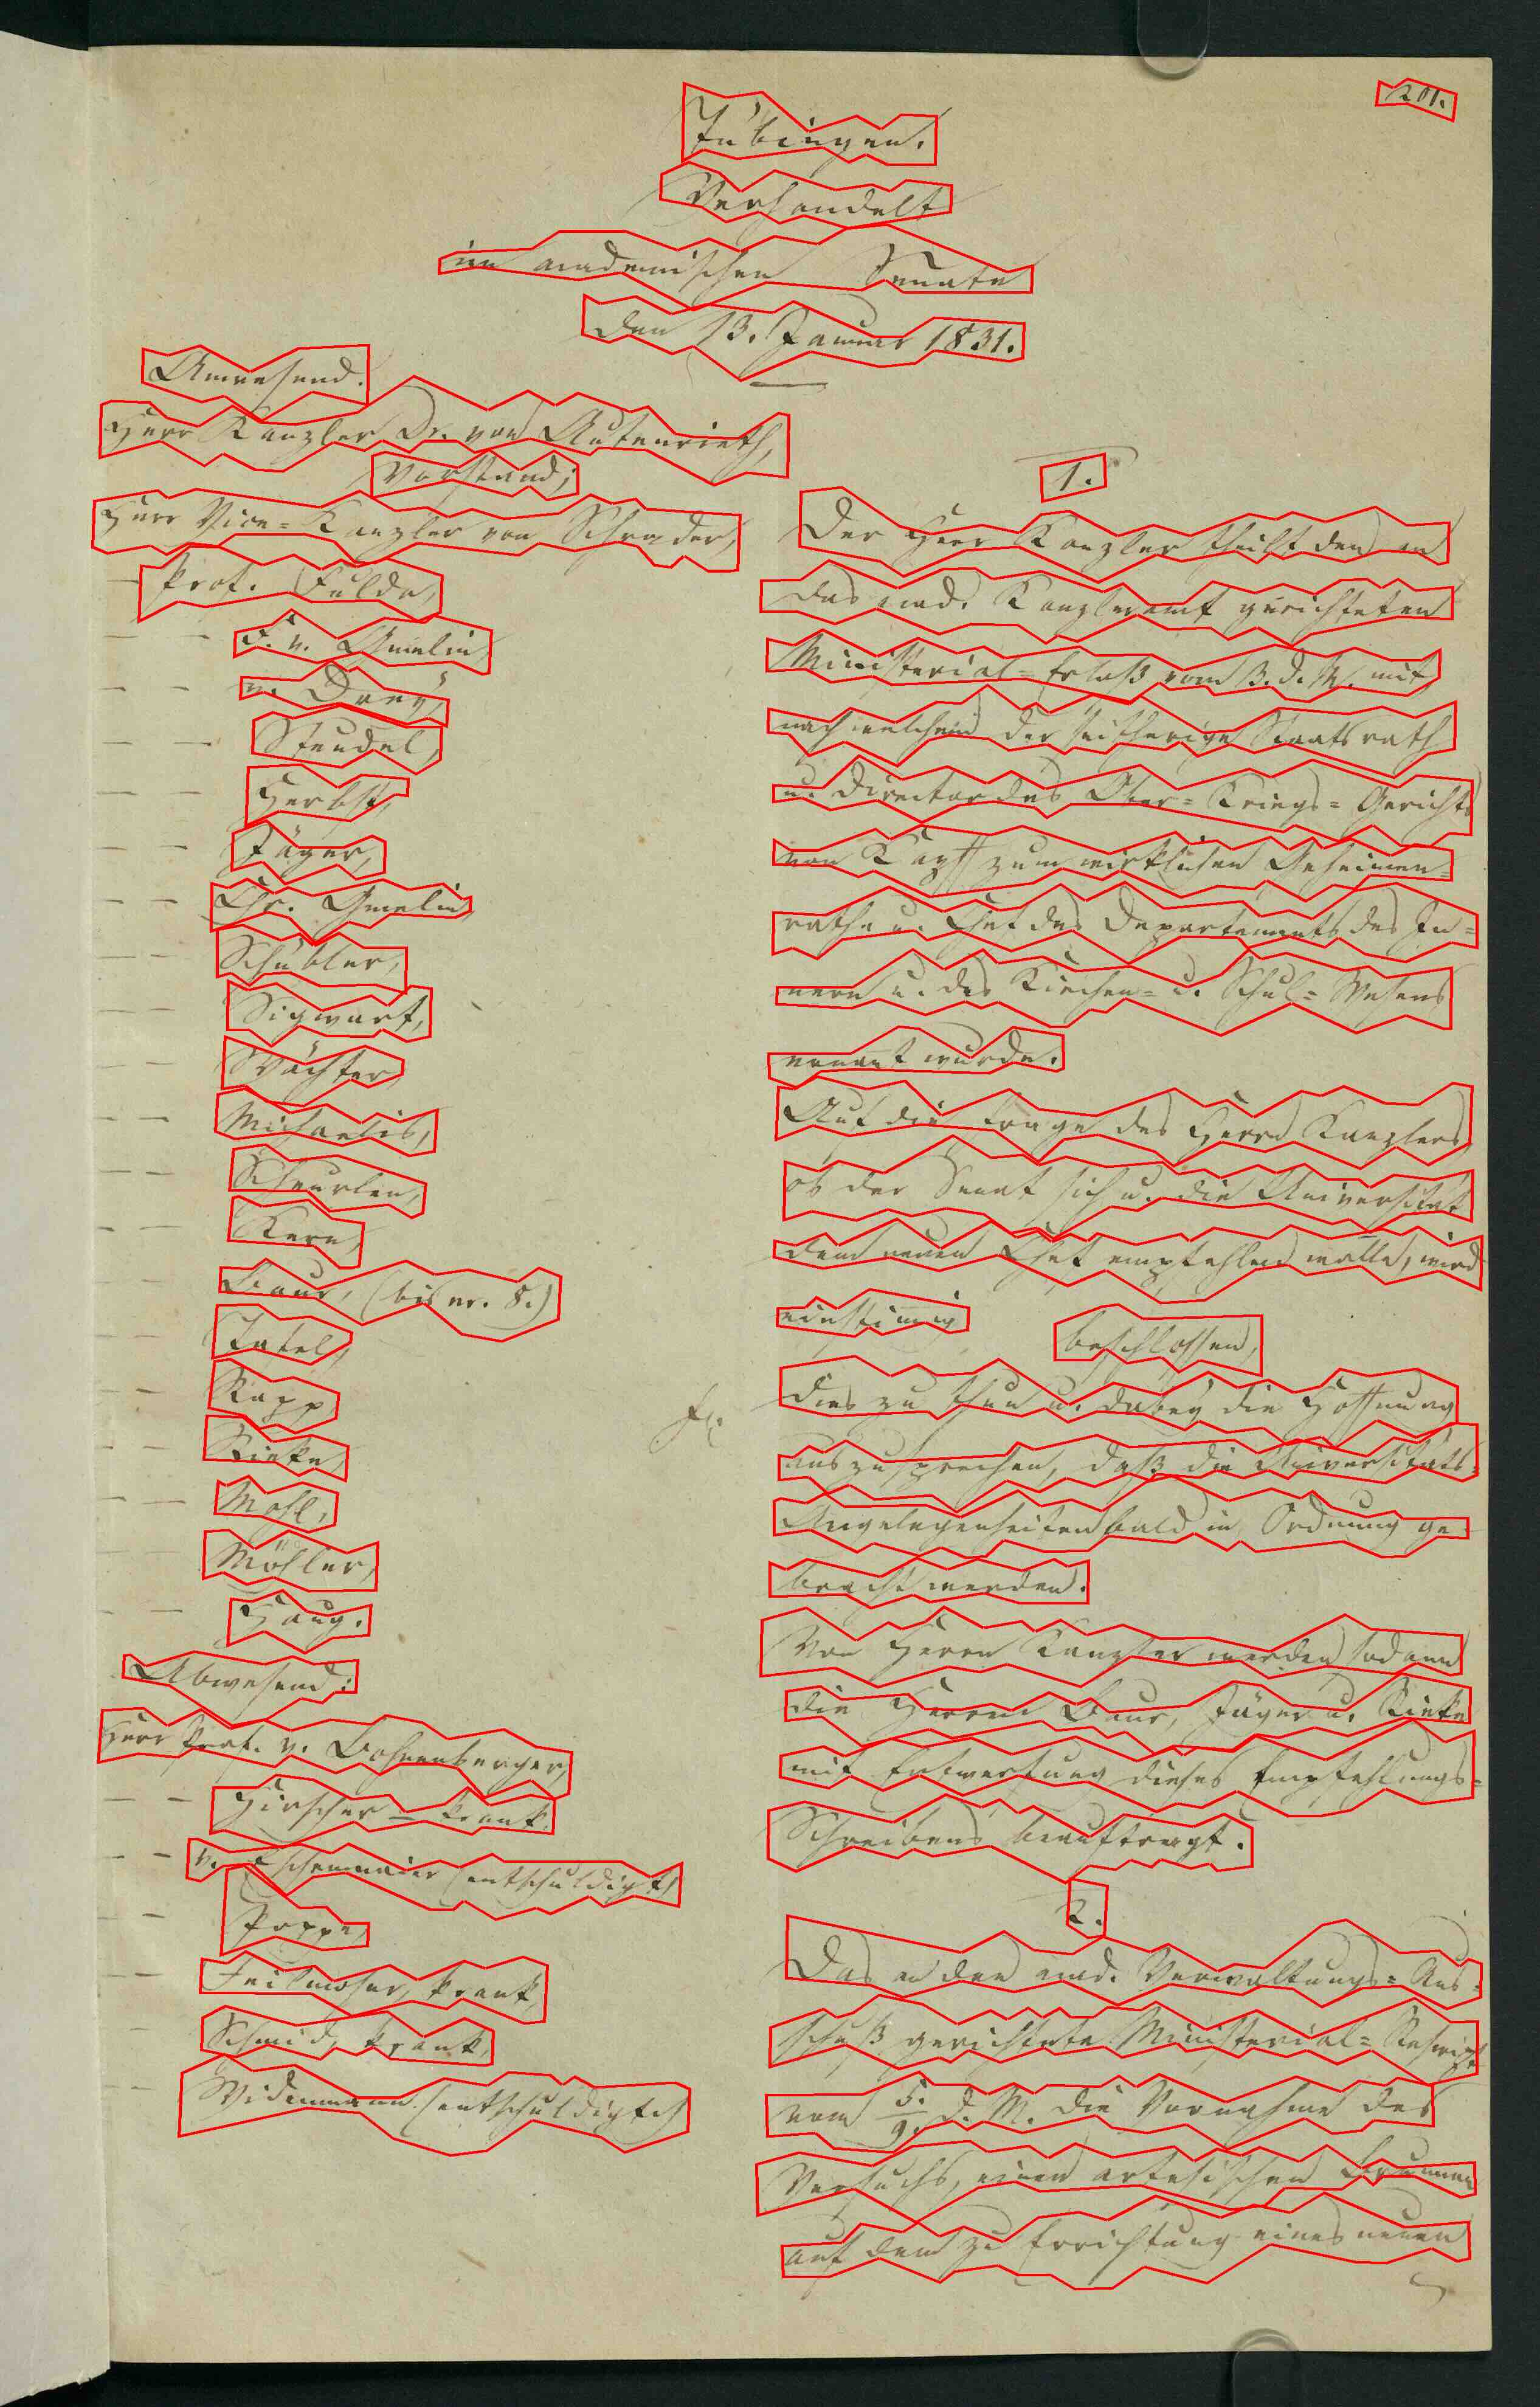 201.
Tübingen.
Verhandelt
im academischen Senate
den 13. Januar 1831.
Anwesend.
Herr Kanzler Dr. von Autenrieth,
Vorstand;
Herr Vice-Kanzler von Schrader,
— Prof. Fulda,
— — F. v. Gmelin,
— — v. Drey,
— — Steudel,
— — Herbst,
— — Jäger,
— — Chr. Gmelin
— — Schübler,
— — Sigwart,
— — Wächter,
— — Michaelis,
— — Scheurlen,
— — Kern,
— — Baur, (bis nr. 8.)
— — Tafel,
— — Rapp,
— — Rieke,
— — Mohl,
— — Möhler,
— — Haug.
Abwesend:
Herr Prof. v. Bohnenberger,
— — Hirscher – krank.
— — v. Eschenmaier (entschuldigt)
— — Poppe,
— — Feilmoser, krank,
— — Schmid, krank,
— — Widenmann (entschuldigt)
1.
Der Herr Kanzler theilt den an
das acad. Kanzleramt gerichteten
Ministerial-Erlaß vom 3. d. M. mit,
nach welchem der seitherige Staatsrath
u. Director des Ober-Kriegs-Gerichts
von Kapff zum wirklichen Geheimen-
rathe u. Chef des Departements des In-
nern u. des Kirchen- u. Schul-Wesens
ernant wurde.
Auf die Frage des Herrn Kanzlers,
ob der Senat sich u. die Universität
dem neuen Chef empfehlen wolle, wird
einstimig
beschlossen,
dies zu thun u. dabey die Hoffnung
auszusprechen, daß die Universitäts-
Angelegenheiten bald in Ordnung ge-
bracht werden.
Von Herrn Kanzler werden sodann
die Herren Baur, Jäger u. Rieke
mit Entwerfung dieses Empfehlungs-
Schreibens beauftragt.
2.
Das an den acad. Verwaltungs-Aus-
schuß gerichtete Ministerial-Rescript
vom 5./9. d. M. die Vornahme des
Versuchs, einen artesischen Brunnen
auf dem zu Errichtung eines neuen